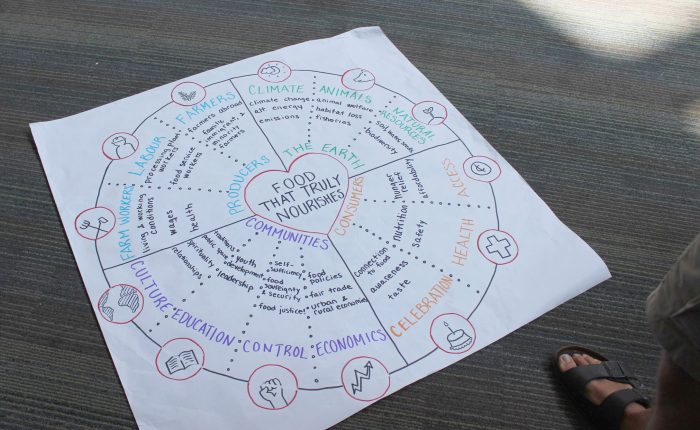 FOOD
THAT TRULY
NOURISHES
THE EARTH
CLIMATE
climate change
alt energy
emissions
ANIMALS
animal welfare
habitat loss
fisheries
NATURAL
RESOURCES
biodiversity
CONSUMERS
ACCESS
affordability
hunger
relief
HEALTH
nutrition
safety
CELEBRATION
connection
to food
awareness
taste
COMMUNITIES
ECONOMICS
food
policies
fair trade
urban &
rural economies
CONTROL
self-
sufficiency
food
sovereignty
security
food justice!
EDUCATION
youth
development
leadership
CULTURE
traditions
public space
spirituality
relationships
PRODUCERS
FARM WORKERS
living & working
conditions
wages
health
LABOUR
processing plant
workers
food service
workers
FARMERS
farmers abroad
family,
immigrant, &
minority
farmers